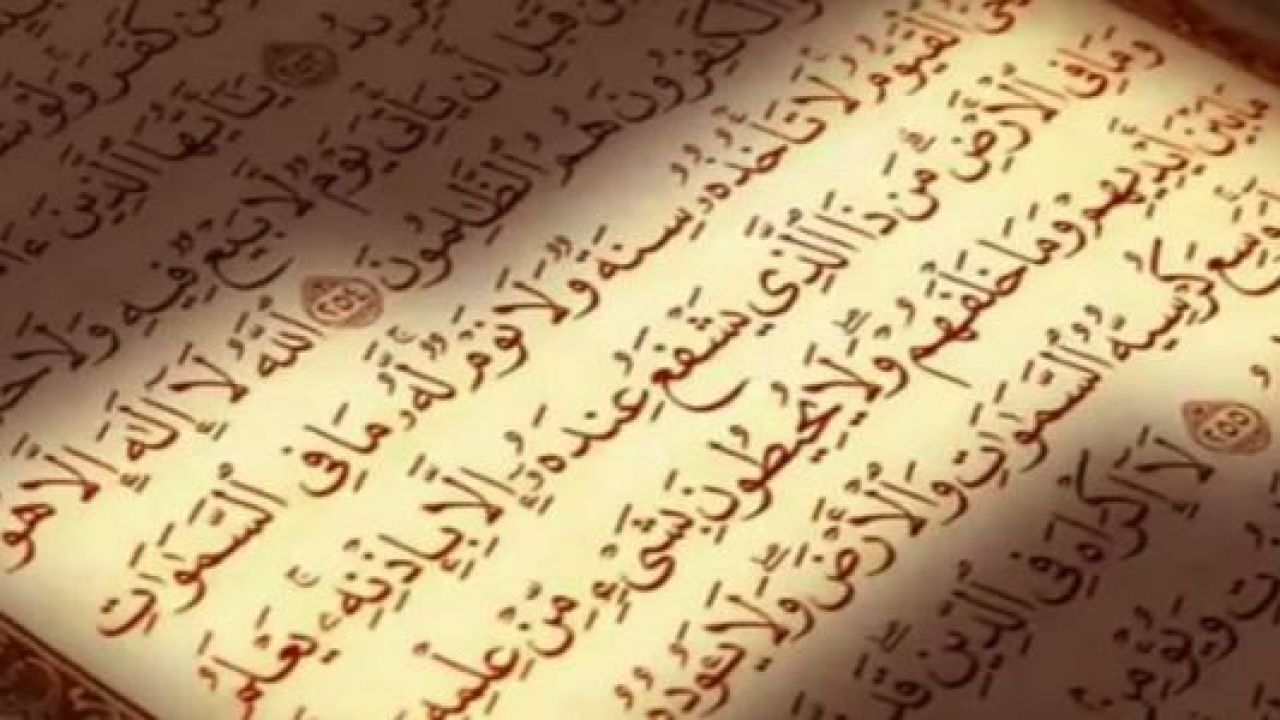 كَفَرَ وَلَوْ
٢٥٣ يَٰٓأَيُّهَا ٱلَّذِينَ
قَبْلِ أَن يَأْتِىَ يَوْمٌ لَّا بَيْعٌ فِيهِ وَلَا
ٱلْكَٰفِرُونَ هُمُ ٱلظَّٰلِمُونَ ٢٥٤ ٱللَّهُ لَآ إِلَٰهَ إِلَّا هُوَ
ٱلْقَيُّومُ لَا تَأْخُذُهُۥ سِنَةٌ وَلَا نَوْمٌ لَّهُۥ مَا فِى ٱلسَّمَٰوَٰتِ
وَمَا فِى ٱلْأَرْضِ مَن ذَا ٱلَّذِى يَشْفَعُ عِندَهُۥٓ إِلَّا بِإِذْنِهِۦ يَعْلَمُ
مَا بَيْنَ أَيْدِيهِمْ وَمَا خَلْفَهُمْ وَلَا يُحِيطُونَ بِشَىْءٍ مِّنْ عِلْمِهِۦٓ
وَسِعَ كُرْسِيُّهُ ٱلسَّمَٰوَٰتِ وَٱلْأَرْضَ وَلَا يَـُٔودُهُۥ
٢٥٥ لَآ إِكْرَاهَ فِى ٱلدِّينِ قَد
وَيُؤْمِنۢ